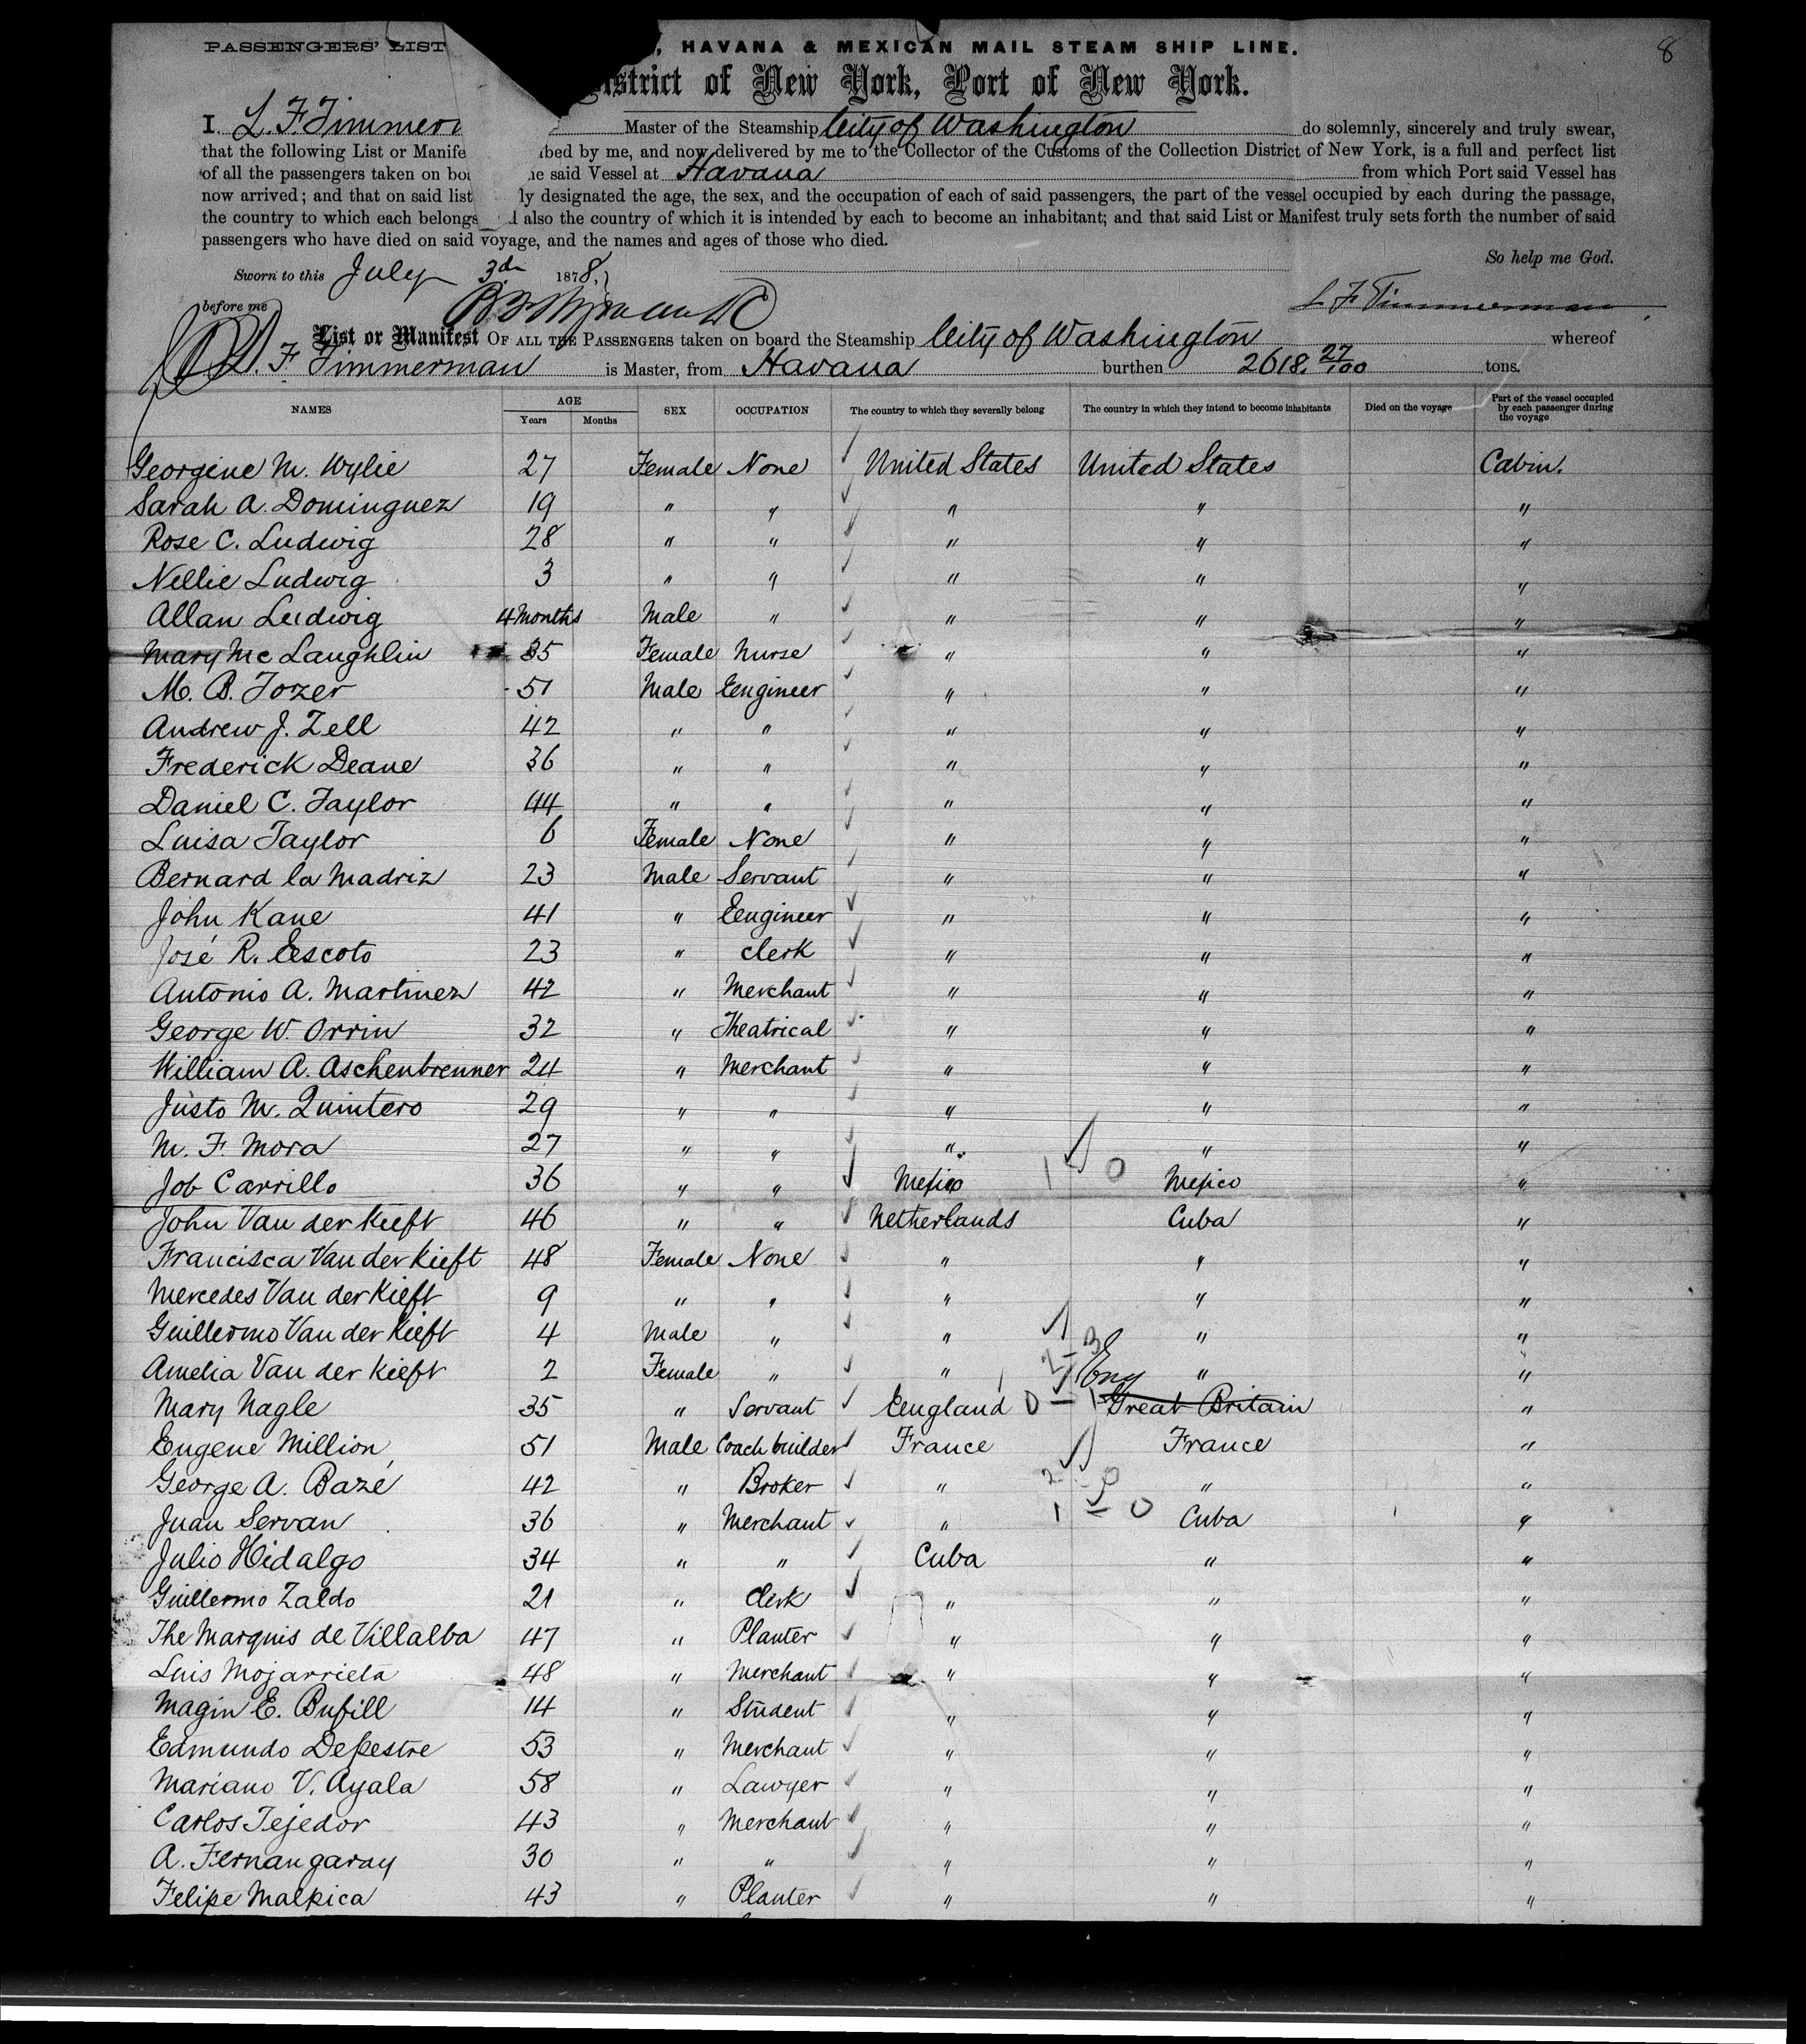 8
PASSENGERS' LIST , HAVANA & MEXICAN MAIL STEAM SHIP LINE.
District of New York, Port of New York.
I. L. F Timmer Master of the Steamship City of Washington do solemnly, sincerely and truly swear,
that the following List or Manife ibed by me, and now delivered by me to the Collector of the Customs of the Collection District of New York, is a full and perfect list
of all the passengers taken on boa he said Vessel at Havana from which Port said Vessel has
now arrived; and that on said list ly designated the age, the sex, and the occupation of each of said passengers, the part of the vessel occupied by each during the passage,
the country to which each belongs d also the country of which it is intended by each to become an inhabitant; and that said List or Manifest truly sets forth the number of said
passengers who have died on said voyage, and the names and ages of those who died.
So help me God.
Sworn to this July 3d 1878,
before me L F Timmerman
List or Manifest OF ALL THE PASSENGERS taken on board the Steamship City of Washington whereof
L. F Timmerman is Master, from Havana burthen 2618. 27/100 tons.
NAMES AGE Years Months SEX OCCUPATION The country to which they severally belong The country in which they intend to become inhabitants Died on the voyage Part of the vessel occupied by each passenger during the voyage
Georgine M. Wylie 27 Female None United States United States Cabin.
Sarah A. Dominguez 19 " " " " "
Rose C. Ludwig 28 " " " " "
Nellie Ludwig 3 " " " " "
Allan Ludwig 4 Months Male " " " "
Mary Mc Laughlin 35 Female Nurse " " "
M. B. Tozer 51 Male Engineer " " "
Andrew J. Zell 42 " " " " "
Frederick Deane 36 " " " " "
Daniel C. Taylor 44 " " " " "
Luisa Taylor 6 Female None " " "
Bernard la Madriz 23 Male Servant " " "
John Kane 41 " Engineer " " "
José R. Escoto 23 " Clerk " " "
Antonio A. Martinez 42 " Merchant " " "
George W. Orrin 32 " Theatrical " " "
William A. Aschenbrenner 24 " Merchant " " "
Justo M. Quintero 29 " " " " "
M. F. Mora 27 " " " " "
Job Carrillo 36 " " Mexico 1 0 Mexico "
John Van der Kieft 46 " " Netherlands Cuba "
Francisca Van der Kieft 48 Female None " " "
Mercedes Van der Kieft 9 " " " " "
Guillermo Van der Kieft 4 Male " " " "
Amelia Van der Kieft 2 Female " " 2-3 Eng " "
Mary Nagle 35 " Servant England 0-1 Great Britain "
Eugene Million 51 Male Coach builder France France "
George A. Bazé 42 " Broker " 2 0 " "
Juan Servan 36 " Merchant " 1 - 0 Cuba "
Julio Hidalgo 34 " " Cuba " "
Guillermo Zaldo 21 " Clerk " " "
The Marquis de Villalba 47 " Planter " " "
Luis Mojarrieta 48 " Merchant " " "
Magin E. Bufill 14 " Student " " "
Edmundo Depestre 53 " Merchant " " "
Mariano V. Ayala 58 " Lawyer " " "
Carlos Tejedor 43 " Merchant " " "
A. Fernangaray 30 " " " " "
Felipe Malpica 43 " Planter " " "